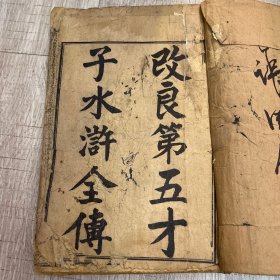 改良第五才
子水滸全傳